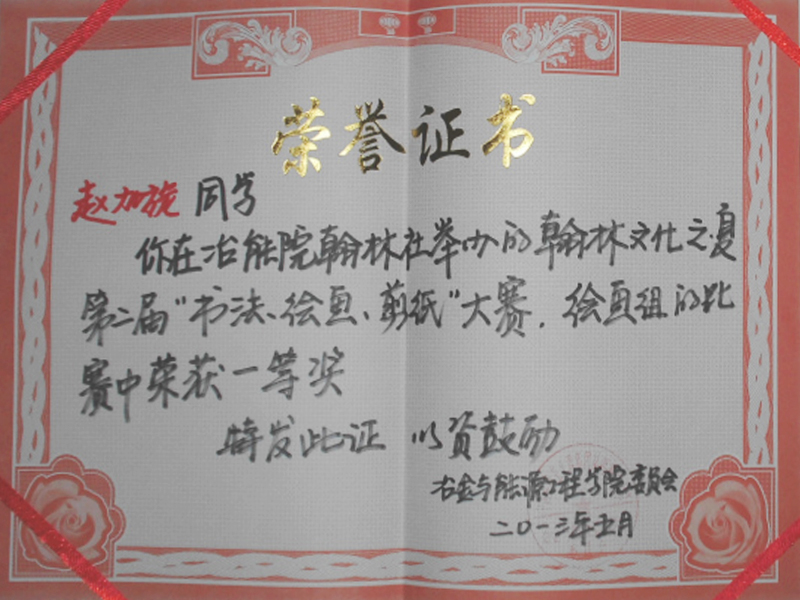 荣誉证书
赵加旋 同学
你在冶能院翰林社举办的翰林文化之夏
第二届“书法、绘画、剪纸”大赛，绘画组的比
赛中荣获一等奖
特发此证 以资鼓励
冶金与能源工程学院委员会
二〇一三年五月